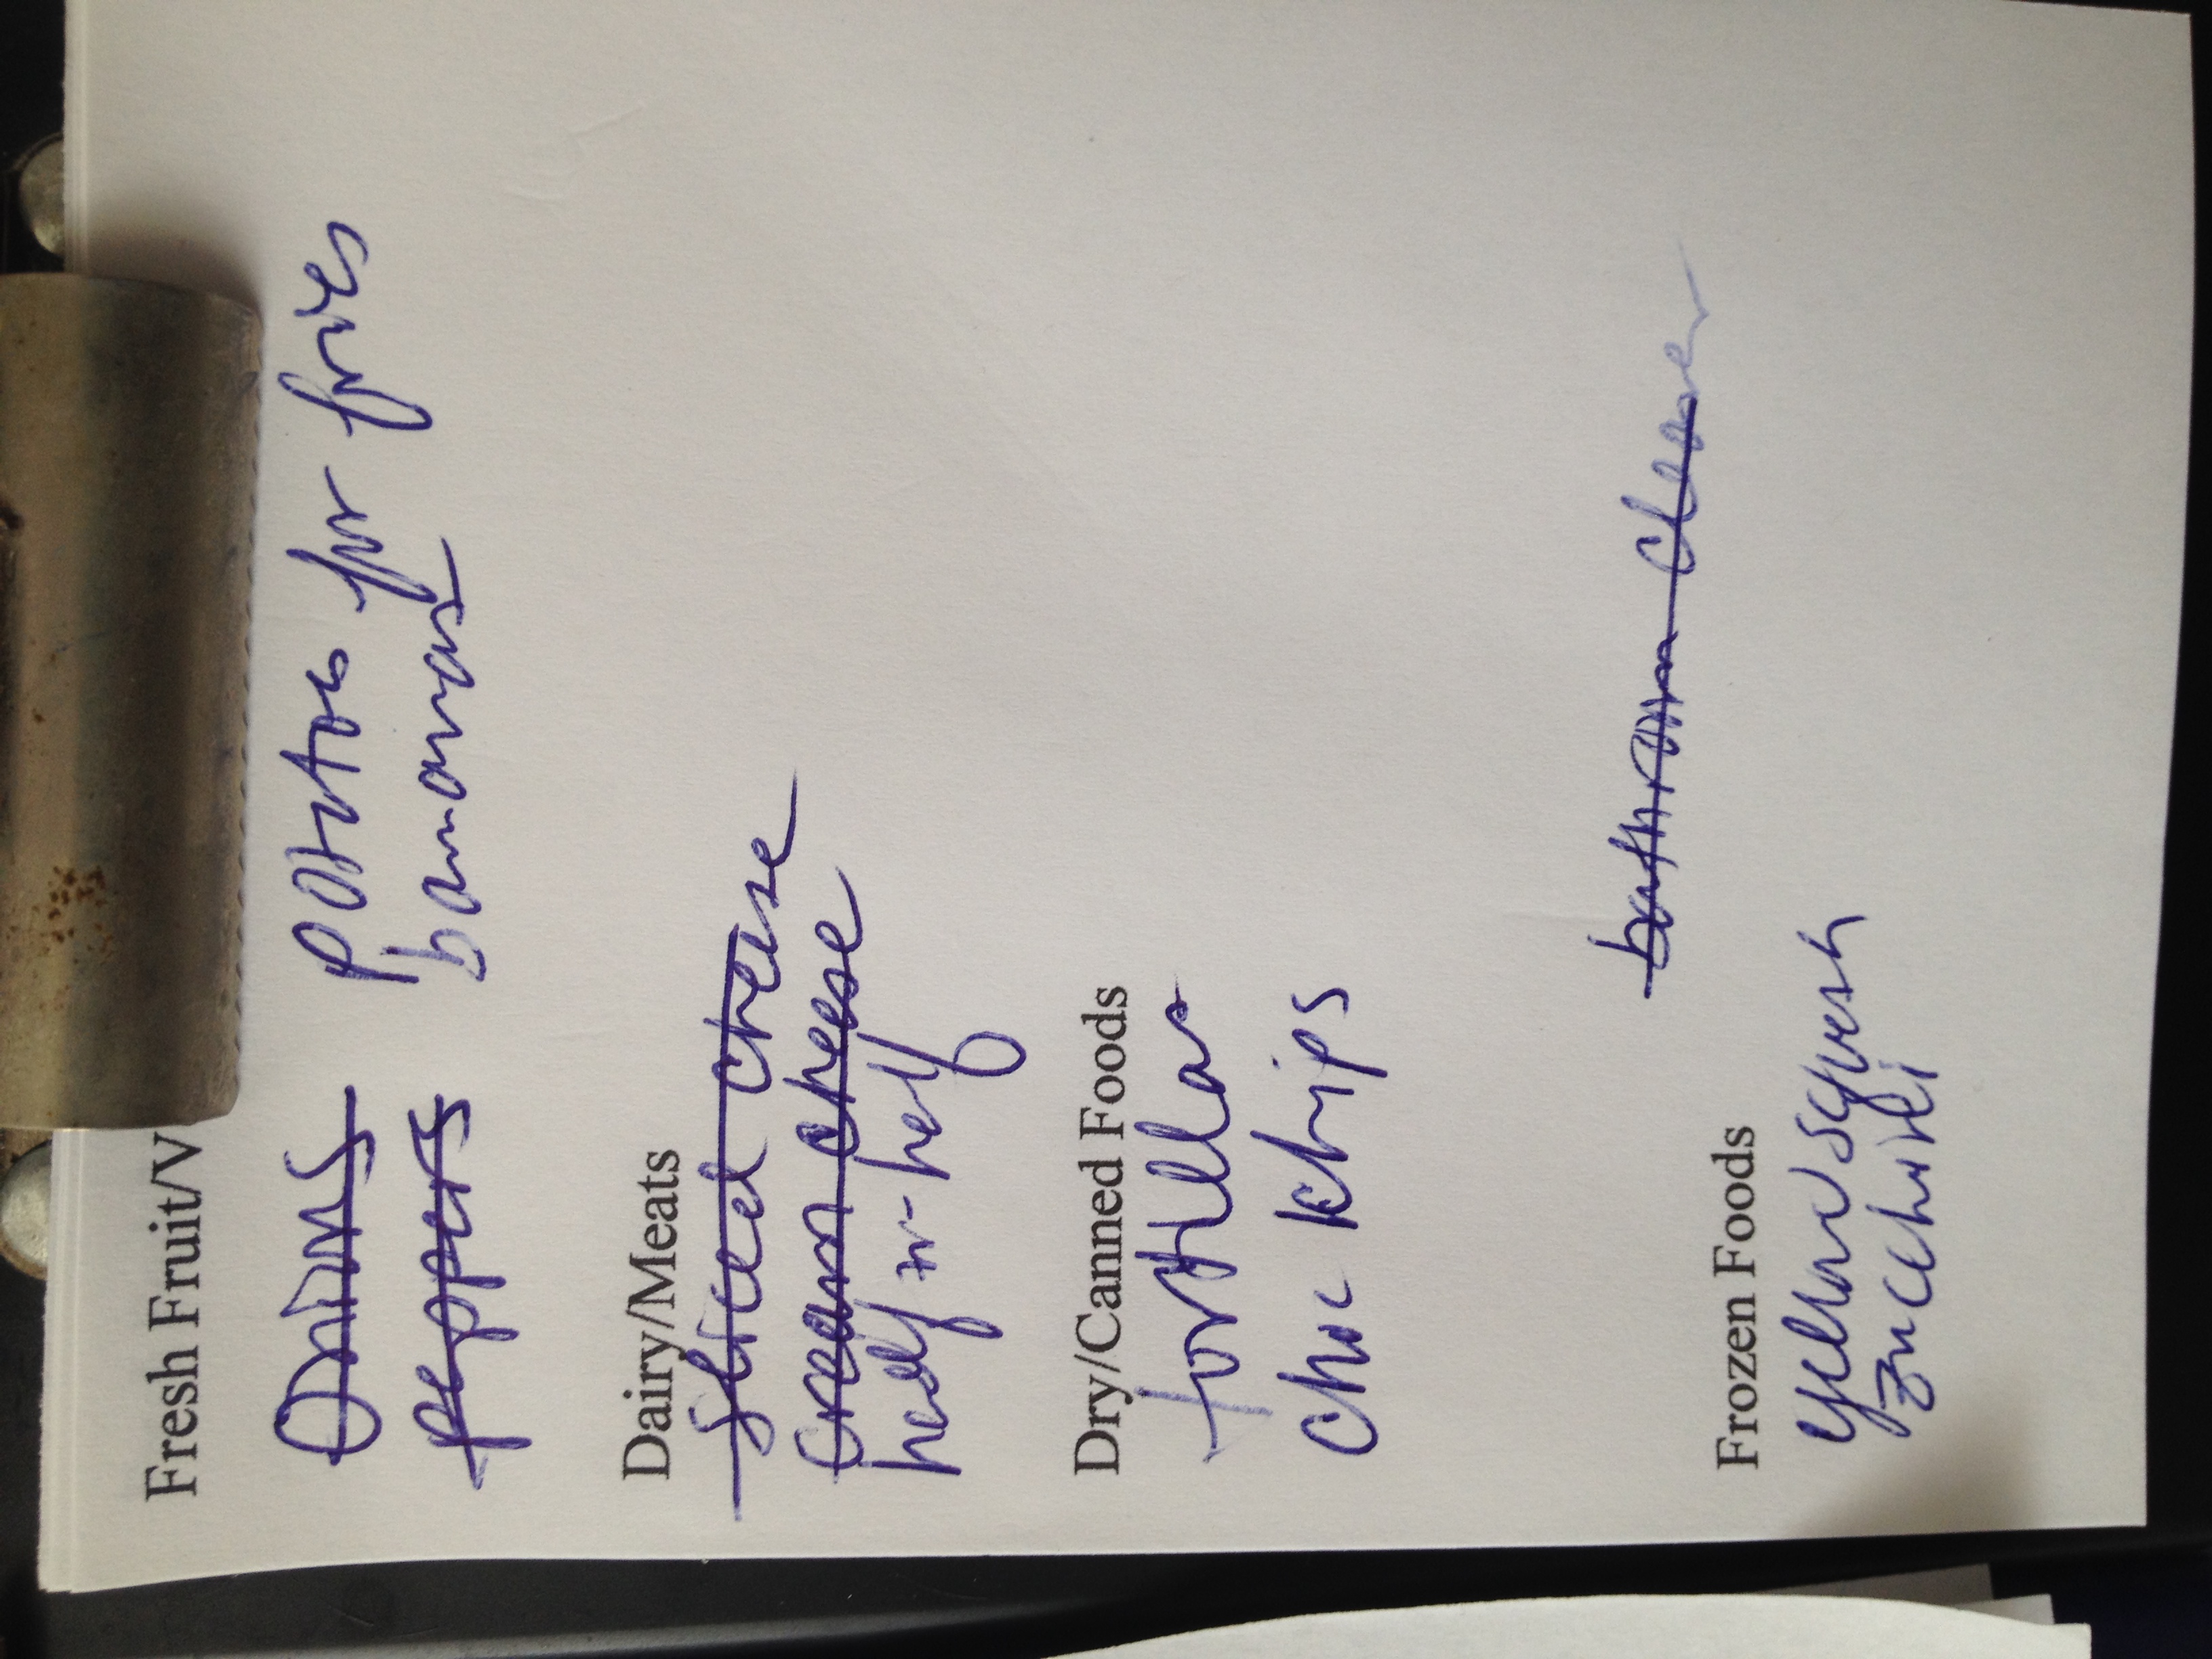 Fresh Fruit/V
Onions potatos for fries
peppers bananas
Dairy/Meats
sliced cheese
cream cheese
half-n-half
Dry/Canned Foods
tortillas
choc chips
bathroom cleaner
Frozen Foods
yellow squash
zucchini